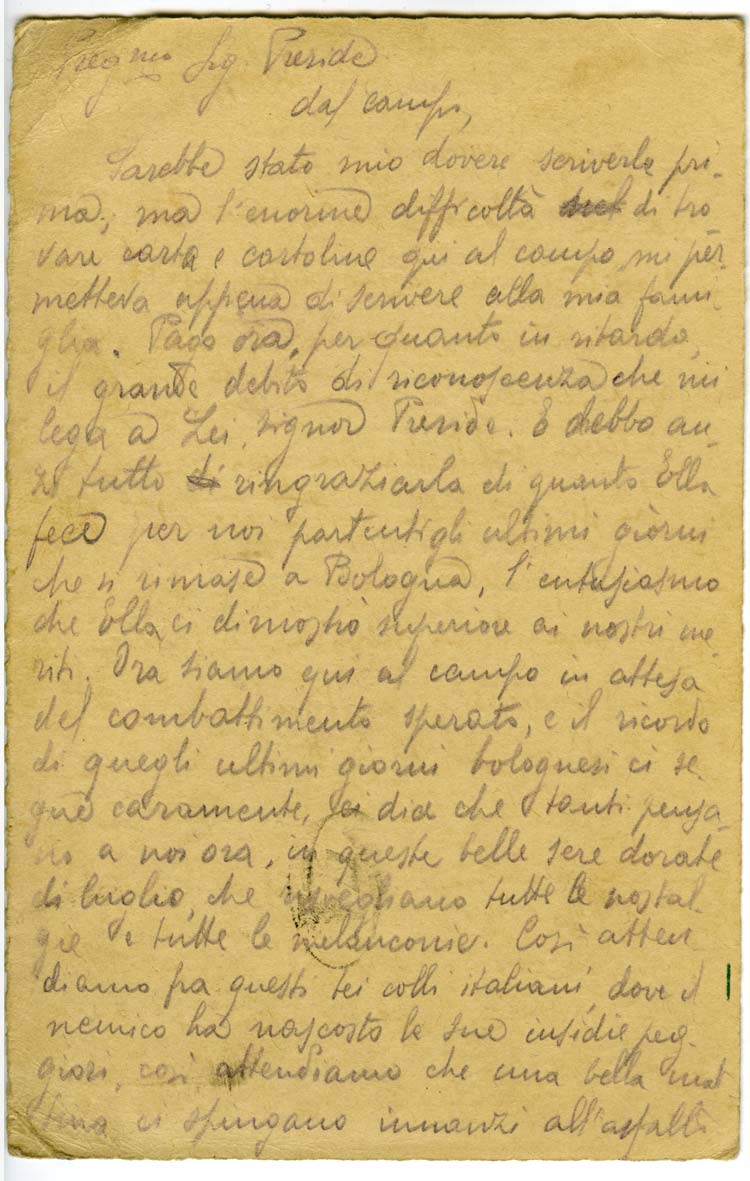 Preg.mo Sig. Preside
dal campo,
Sarebbe stato mio dovere scriverle pri-
ma; ma l'enorme difficoltà di tro
vare carta e cartoline qui al campo, mi per-
metteva appena di scrivere alla mia fami-
glia. Pago ora, per quanto in ritardo,
il grande debito di riconoscenza che mi
lega a Lei, signor Preside. E debbo an-
zi tutto ringraziarla di quanto Ella
fece per noi partenti gli ultimi giorni
che si rimase a Bologna, l'entusiasmo
che Ella ci dimostrò superiore ai nostri me-
riti. Ora siamo qui al campo in attesa
del combattimento sperato, e il ricordo
di quegli ultimi giorni bolognesi ci se-
gue caramente, ci dice che tanti pensa-
no a noi ora, in queste belle sere dorate
di luglio, che risvegliano tutte le nostal-
gie e tutte le melanconie. Così atten-
diamo fra questi bei colli italiani, dove il
nemico ha nascosto le sue insidie peg-
giori, così attendiamo che una bella mat
tina ci spingano innanzi all'assalto